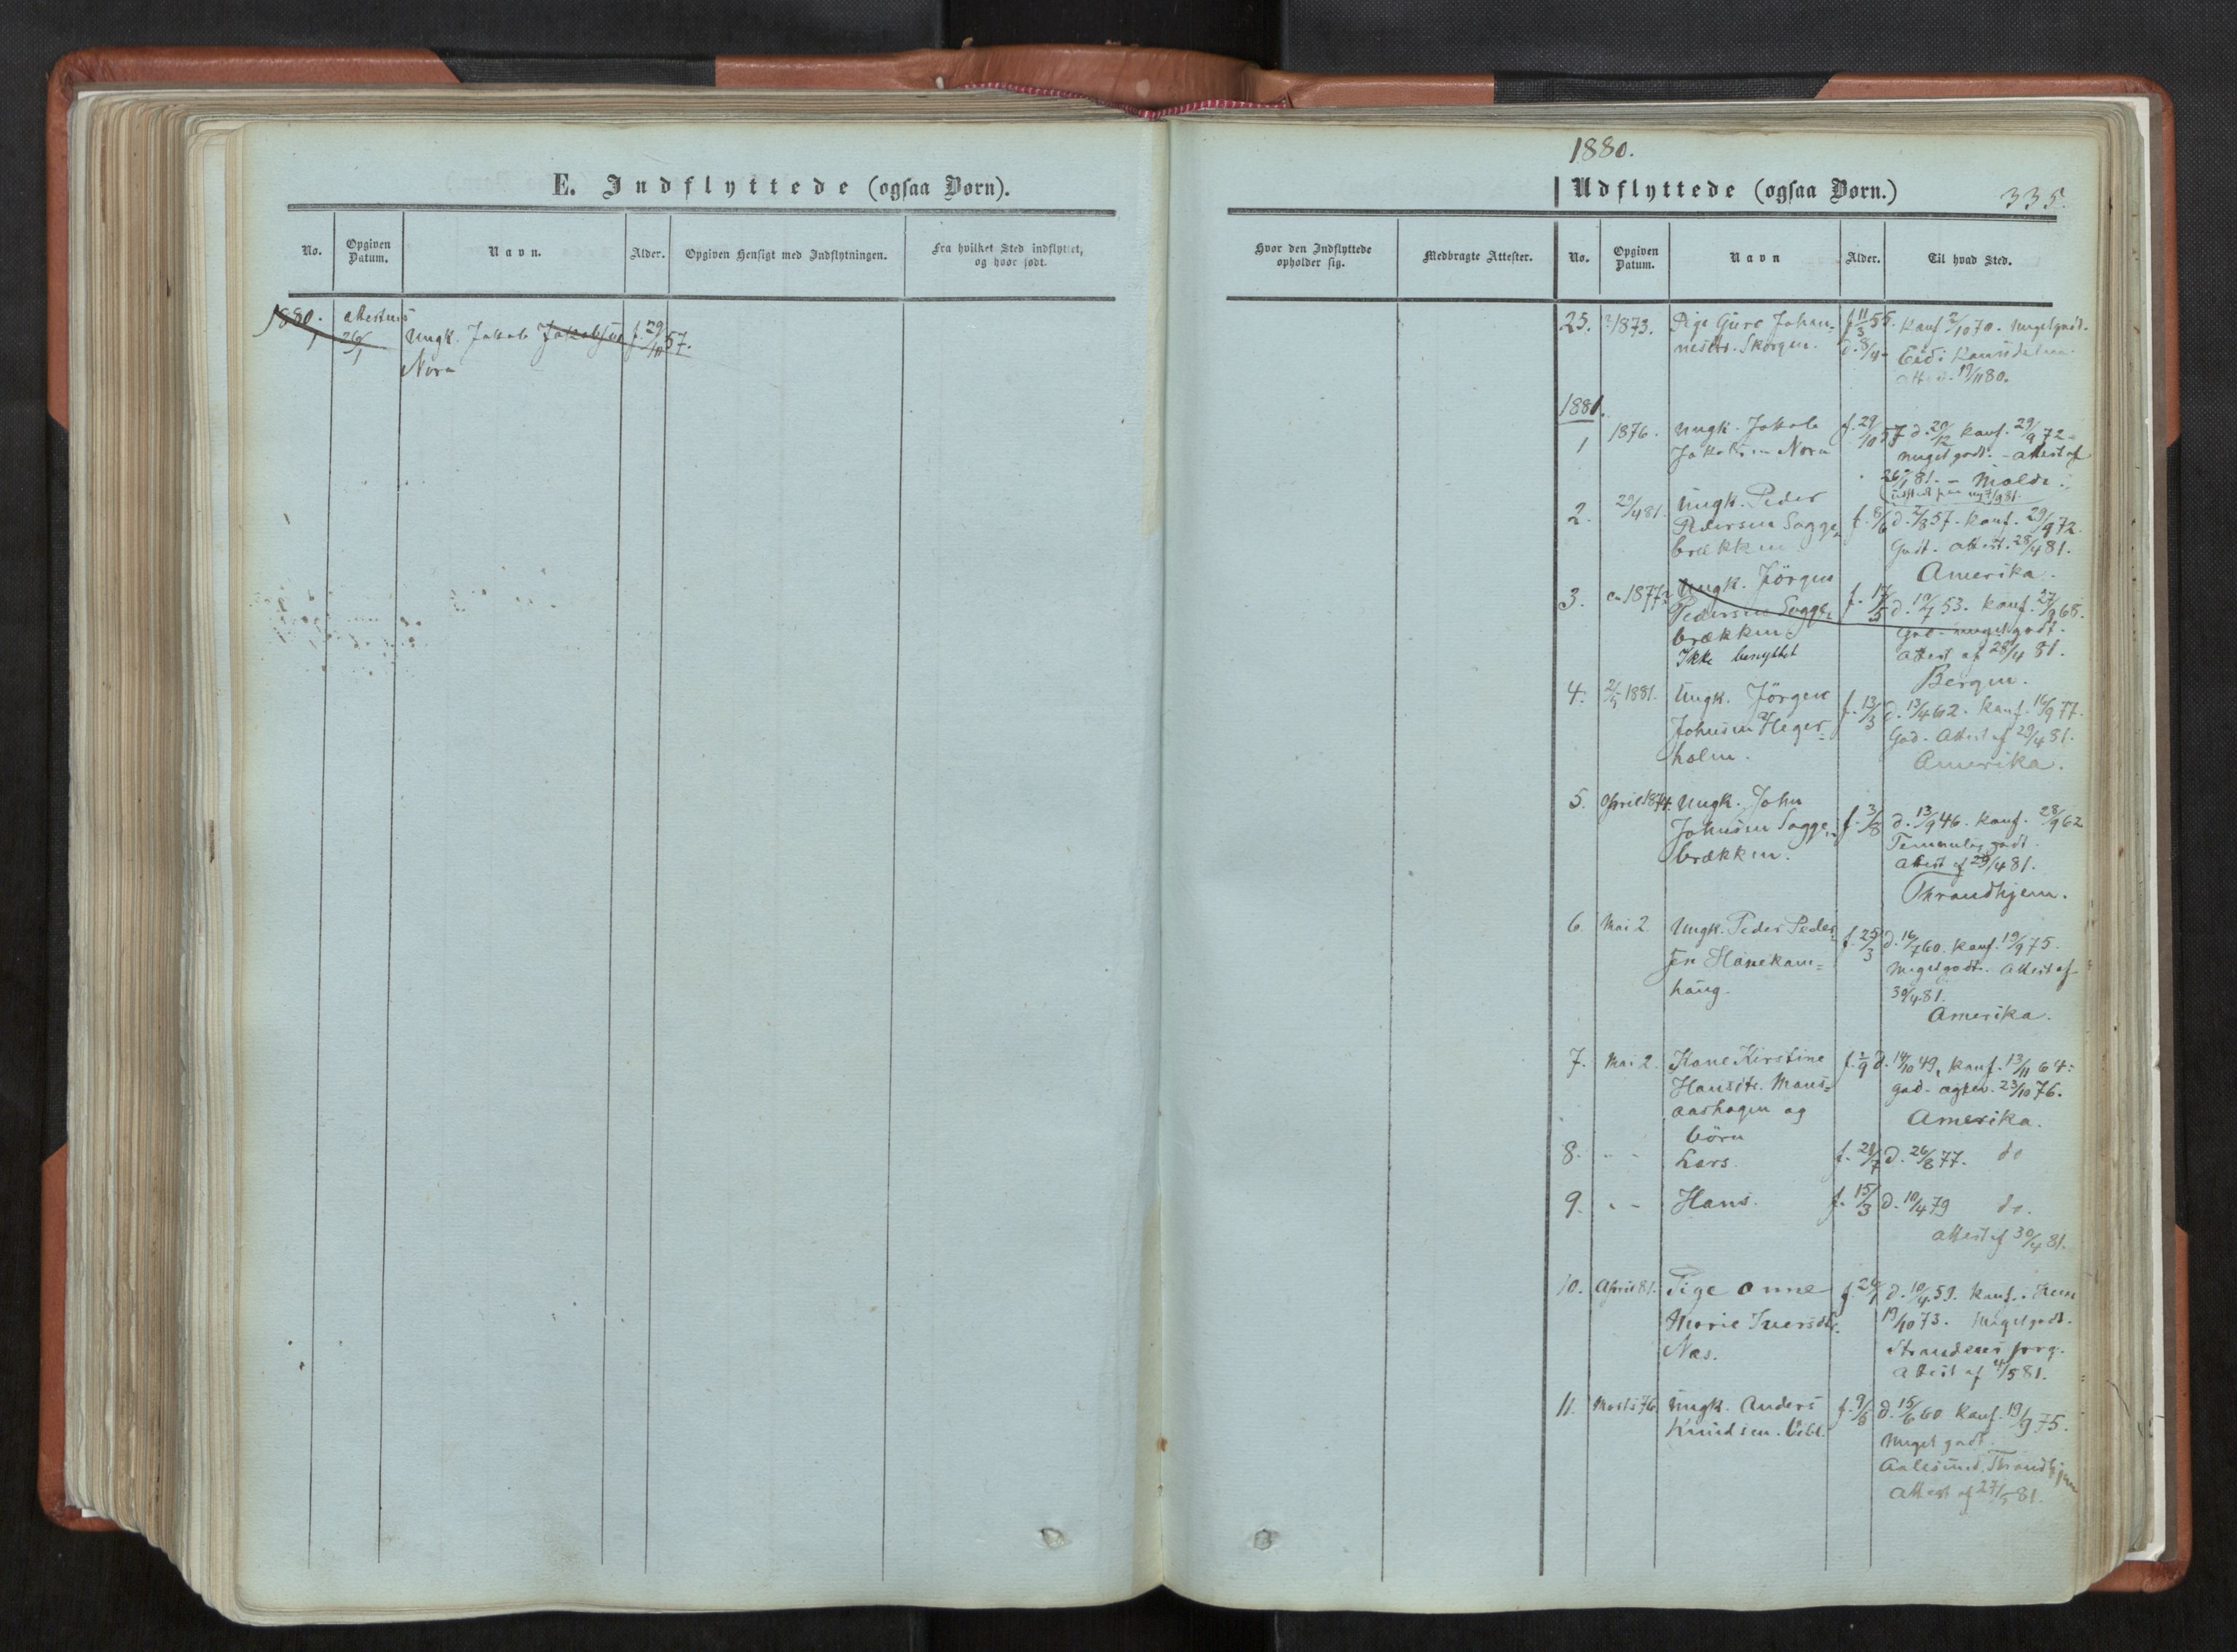 E. Indflyttede (ogsaa Børn).
No.
Opgiven
Datum.
Navn.
Alder.
Opgiven Hensigt med Indflytningen.
Fra hvilket Sted indflyttet,
og hvor født.
1880. attestens
1 26/1 Ungk. Jakob Jakobsen f. 29/10 57.
Nora
1880.
Udflyttede (ogsaa Børn.)
335.
Hvor den Indflyttede
opholder sig.
Medbragte Attester.
No.
Opgiven
Datum.
Navn
Alder.
Til hvad Sted.
25. 1873. Pige Guro Johan-
nesdtr. Skorgen.
f 11/3 55. Konf 2/10 70. Megetgodt.
d. 8/4
Eid i Romsdalen.
19/11 80.
1881.
1 1876. Ungk. Jakob
Jakobsen Nora
f. 29/10 57 d. 20/12 konf. 29/9 72 -
meget godt. - attest af
26/1 81. - Molde.
2. 29/4 81. Ungk. Peder
Pedersen Sogge
brækken
f. 8/6 d. 2/8 57. konf. 29/9 72.
Godt. attest. 28/4 81.
Amerika.
3. 1877 Ungk. Jörgen
Pedersen Sogge
brækken
Ikke benyttet
f. 17/5 d. 10/7 53. konf. 27/9 68.
God - megetgodt.
attest af 28/4 81.
Bergen.
4. 2/5 1881. Ungk. Jörgen
Johnsen Heger-
holm.
f. 13/3 d. 13/4 62. konf. 16/9 77.
God. Attest af 29/4 81.
Amerika.
5. April 1874. Ungk. John
Johnsen Sogge-
brækken.
f. 3/8 d. 13/9 46. konf. 28/9 62
Temmelig godt.
attest af 29/4 81.
Throndhjem.
6. Mai 2. Ungk. Peder Peder-
sen Hanekam=
haug.
f. 25/3 d. 16/7 60. konf. 19/9 75.
Megetgodt. Attest af
30/4 81.
Amerika.
7. Mai 2. Kone Kirstine
Hansdtr. Mons=
aashagen og
börn
f. 1/9 d. 14/10 49, konf. 13/11 64:
god - agtev. 23/10 76.
Amerika.
8. - - Lars. f. 21/7 d. 26/8 77. do
9. - - Hans. f. 15/3 d. 10/4 79 do.
attest af 30/4 81.
10. April 81. Pige Anne
Marie Iversdtr.
Næs.
f. 24/1 d. 10/4 59. konf.
19/10 73. Megetgodt.
Strandens prg.
attest af 4/5 81.
11. Marts 76 Ungk. Anders
Knudsen.
f. 9/5 d. 15/6 60 konf. 19/9 75.
Meget godt.
Aalesund. Throndhjem
attest af 27/5 81.